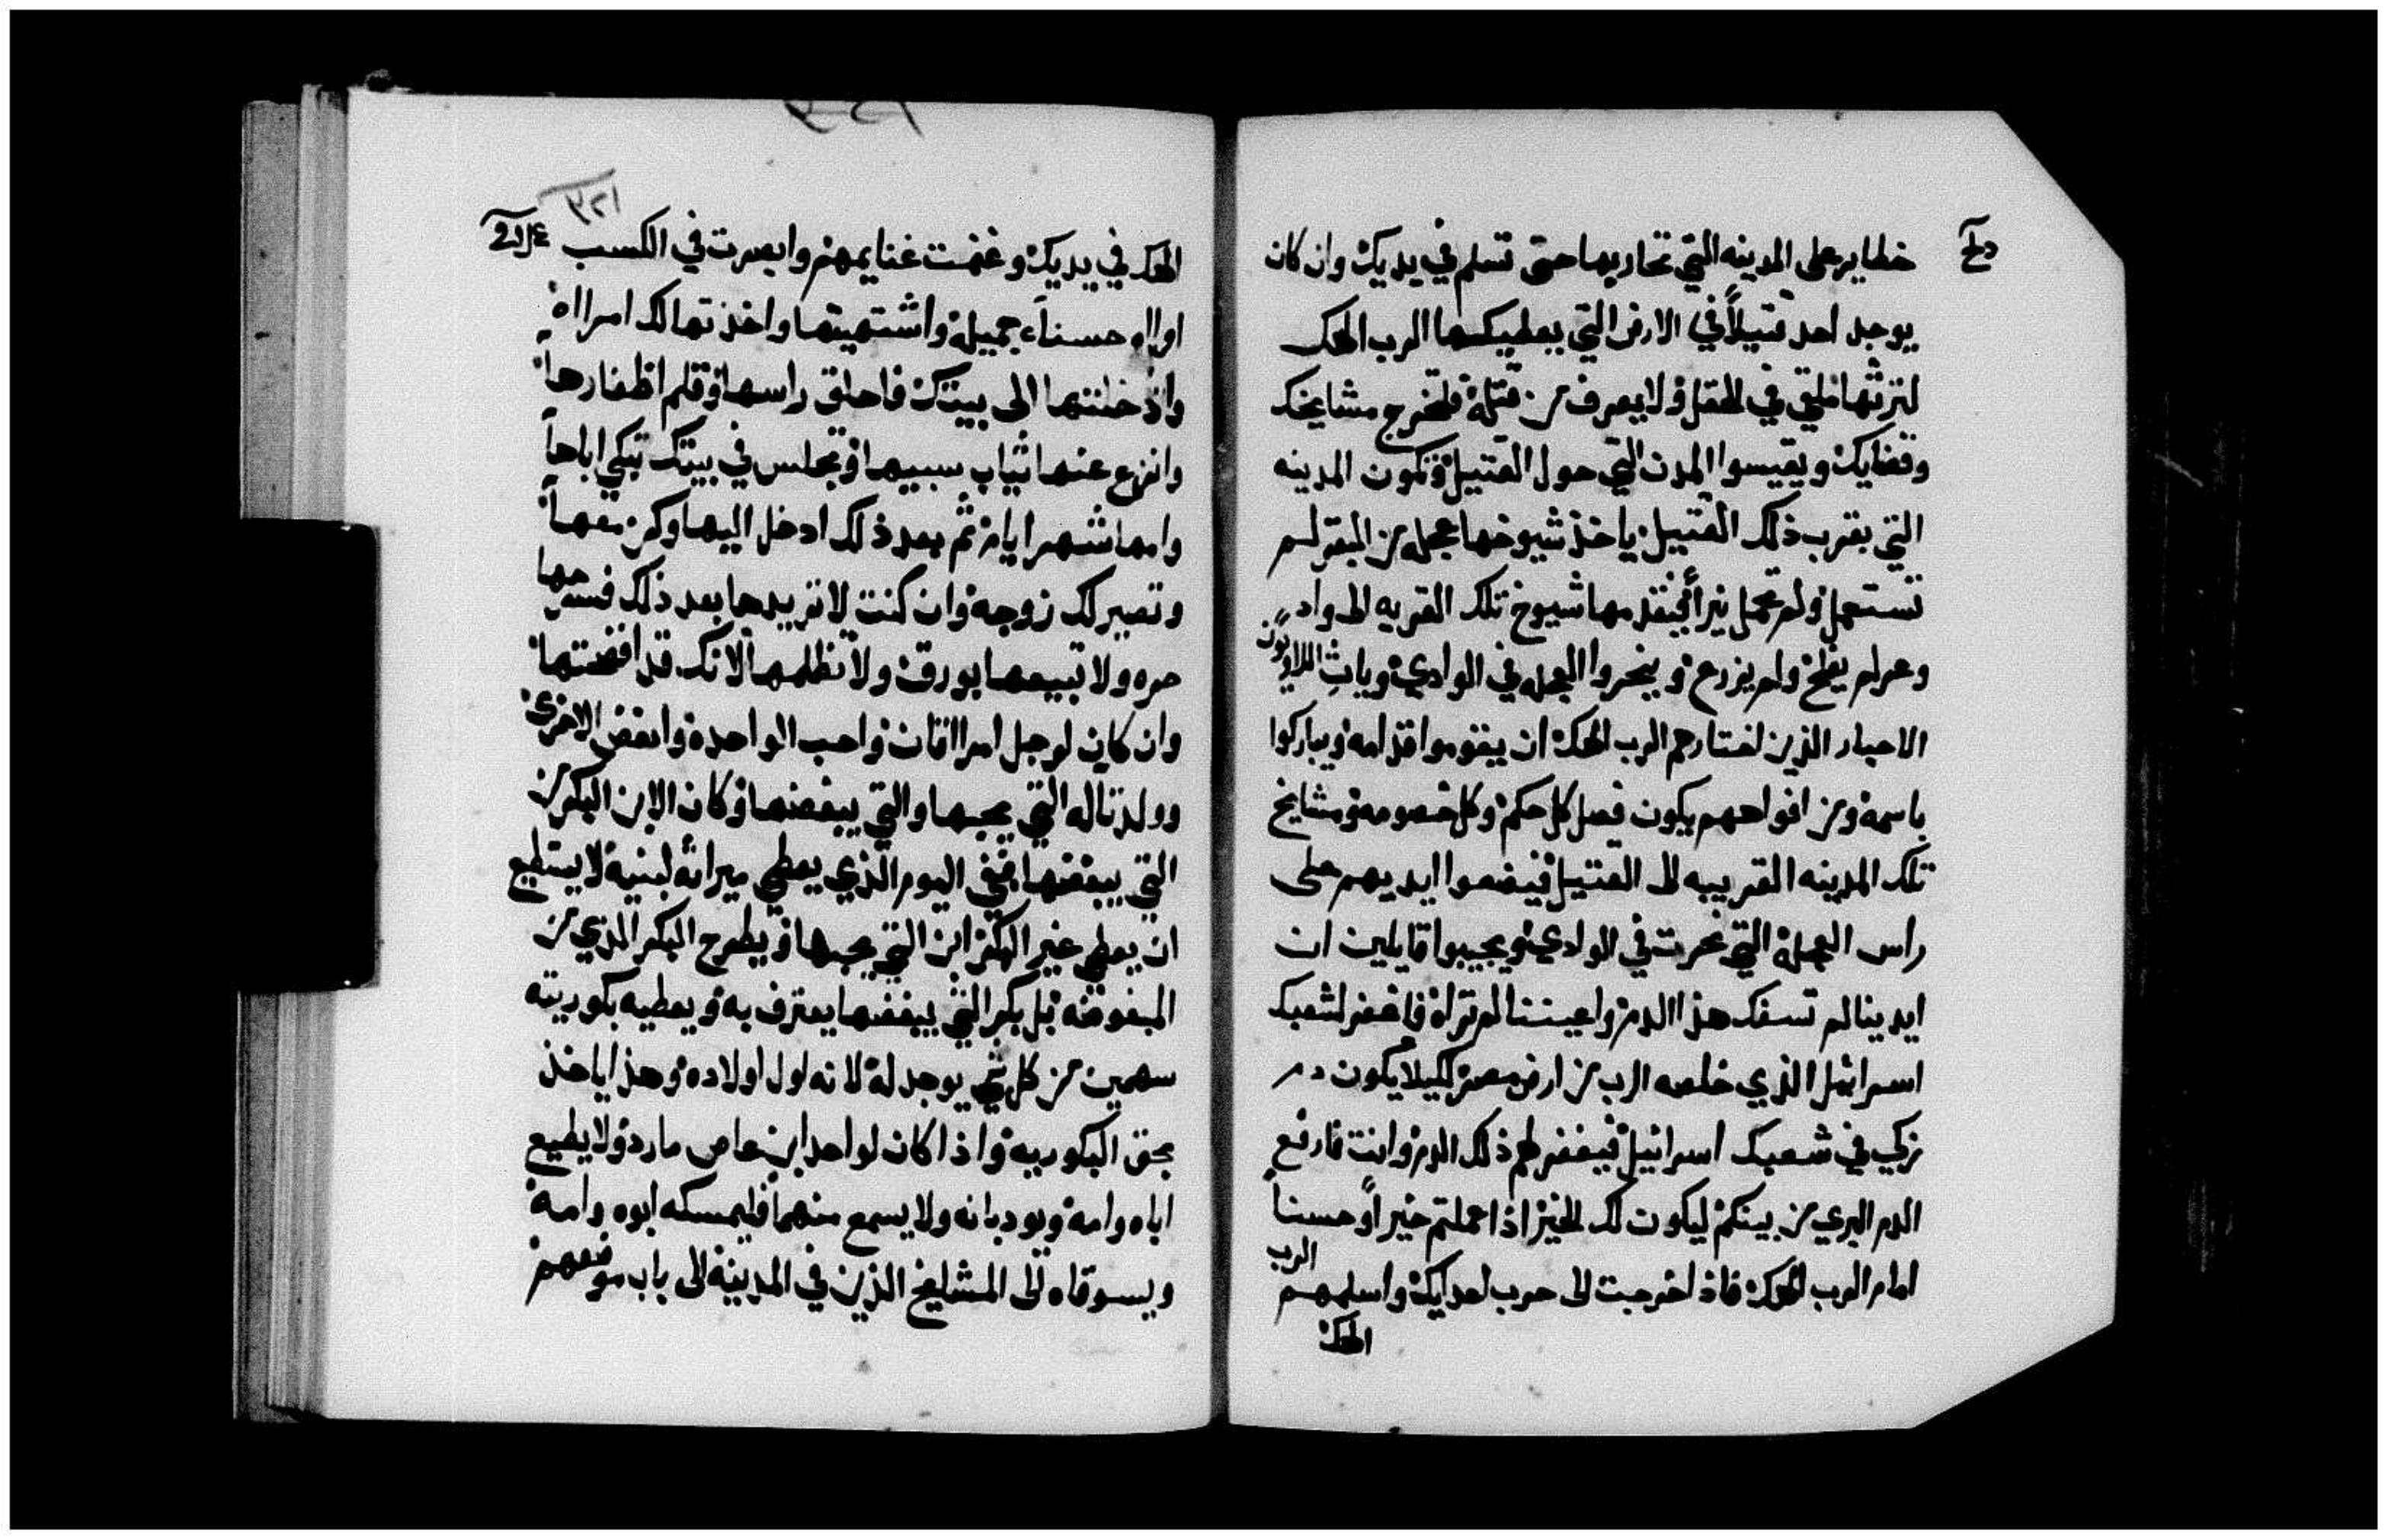 خطاير على المدينه التي تحاربها حتى تسلم في يديك وان كان
يوجد احد قتيلاً في الارض التي يعطيكها الرب الهك
لترثها ملقي في الحقل ولا يعرف من قتله فلتخرج مشايخك
وقضايك ويقيسوا المدن التي حول القتيل وتكون المدينه
التي بقرب ذلك القتيل ياخذ شيوخها عجله من البقر لم
تستعمل ولم تحمل نيراً فينقدمها شيوخ تلك القريه الى واد
وعر لم يفلح ولم يزرع وينحروا العجله في الوادي ويات اللاويون
الاحبار الذين اختارهم الرب الهك ان يقوموا قدامه ويباركوا
باسمه ومن افواههم يكون فصل كل حكم وكل خصومه ومشايخ
تلك المدينه القريبه الى القتيل فيضعوا ايديهم على
راس العجله التي نحرت في الوادي ويجيبوا قايلين ان
ايدينا لم تسفك هذا الدم واعيننا لم تراه فاغفر لشعبك
اسرائيل الذي خلصه الرب من ارض مصر لكيلا يكون دم
زكي في شعبك اسرائيل فيغفر لهم ذلك الدم وانت فارفع
الدم البري من بينكم ليكون لك الخير اذا عملتم خيراً وحسنا
امام الرب الهك فاذا خرجت الى حرب اعدايك واسلمهم الرب
الهك
٣٢١
الهك في يديك وغنمت غنايمهم وابصرت في الكسب
اوااه حسناء جميله واشتهيتها واخذتها لك امرااه
وادخلتها الى بيتك فاحلق راسها وقلم اظفارها
وانزع عنها ثياب سبيها وتجلس في بيتك تبكي اباها
وامها شهر ايام ثم بعد ذلك ادخل اليها وكن معها
وتصير لك زوجه وان كنت لا تريدها بعد ذلك فسرحها
حره ولا تبيعها بورق ولا تظلمها لانك قد افضحتها
وان كان لرجل امرااتان واحب الواحده وابغض الاخرى
وولدتا له التي يحبها والتي يبغضها وكان الابن البكر من
التي يبغضها ففي اليوم الذي يعطي ميراثه لبنيه لا يستطيع
ان يعطي غير البكر ابن التي يحبها ويطرح البكر الذي من
المبغوضه بل بكر التي يبغضها يعترف به ويعطيه بكوريته
سهمين من كل شي يوجد له لانه اول اولاده وهذا ياخذ
بحق البكوريه واذا كان لواحد ابن عاص مارد ولا يطيع
اباه وامه ويودبانه ولا يسمع منهما فليمسكه ابوه وامه
ويسوقاه الى المشايخ الذين في المدينه الى باب موضعهم